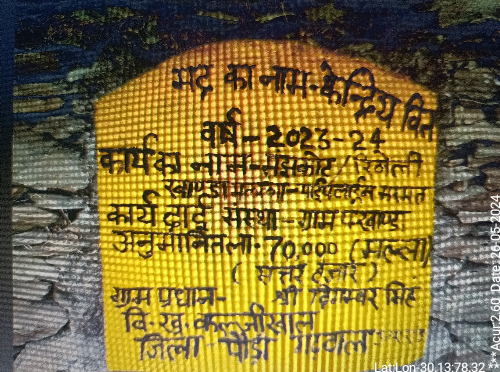 मद का नाम-केन्द्रिय वित
वर्ष-2023-24
कार्य का नाम- /
पाईपलाईन मरमत
कार्य दाई संस्था-ग्राम पखाण्डा
अनुमानितला-70,000 (मल्ला)
(सत्तर हजार)
ग्राम प्रधान- श्री दिगम्बर सिंह
वि.ख.कल्जीखाल
जिला पौड़ी गढ़वाल
Lat:Lon 30.13:78.32
**Acu:2.60 Date:20-05-2024